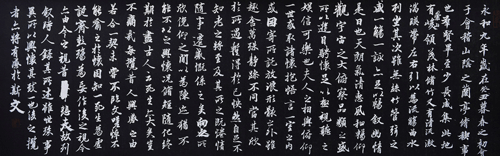 永和九年歲在癸丑暮春之初會
于會稽山陰之蘭亭脩禊事
也羣賢畢至少長咸集此地
有峻領茂林脩竹又有清流激
湍暎帶左右引以為流觴曲水
列坐其次雖無絲竹管弦之
盛一觴一詠亦足以暢敘幽情
是日也天朗氣清惠風和暢仰
觀宇宙之大俯察品類之盛
所以遊目騁懷足以極視聽之
娛信可樂也夫人之相與俯仰
一世或取諸懷抱悟言一室之內
或因寄所託放浪形骸之外雖
趣舍萬殊靜躁不同當其欣
於所遇暫得於己快然自足不
知老之將至及其所之既惓情
隨事遷感慨係之矣向之所
欣俛仰之間以為陳迹猶不
能不以之興懷況脩短隨化終
期於盡古人云死生亦大矣豈
不痛哉每攬昔人興感之由
若合一契未嘗不臨文嗟悼不
能喻之於懷固知一死生為虛
誕齊彭殤為妄作後之視今
亦由今之視昔悲夫故列
敘時人錄其所述雖世殊事
異所以興懷其致一也後之攬
者亦將有感於斯文